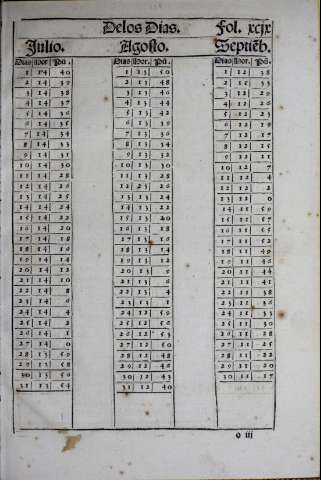 Delos Dias. Fol. xcjx
Julio. Agosto. Septiēb.
Dias Hor. Pū. Dias Hor. Pū. Dias Hor. Pū.
1 14 40 1 13 50 1 12 38
2 14 39 2 13 48 2 12 33
3 14 38 3 13 46 3 12 29
4 14 37 4 13 44 4 12 26
5 14 36 5 13 42 5 12 23
6 14 35 6 13 39 6 12
7 14 34 7 13 36 7 12 15
8 14 33 8 13 8 12
9 14 31 9 13 9 12 11
10 14 30 10 13 30 10 12 7
11 14 28 11 13 28 11 12 4
12 14 26 12 13 26 12 12 2
13 14 25 13 13 24 13 12 0
14 14 24 14 13 22 14 11 59
15 14 22 15 13 20 15 11 57
16 14 20 16 13 18 16 11 55
17 14 18 17 13 16 17 11 52
18 14 16 18 13 14 18 11 49
19 14 14 19 13 12 19 11 46
20 14 12 20 13 20 11 44
21 14 10 21 13 6 21 11 41
22 14 8 22 13 4 22 11 38
23 14 6 23 13 1 23 11 36
24 14 4 24 12 59 24 11 33
25 14 25 12 56 25 11 30
26 14 1 26 12 53 26 11 28
27 14 0 27 12 50 27 11 25
28 13 59 28 12 48 28 11 22
29 13 58 29 12 46 29 11 20
30 13 56 30 12 43 30 11 17
31 13 54 31 12 40
o iij